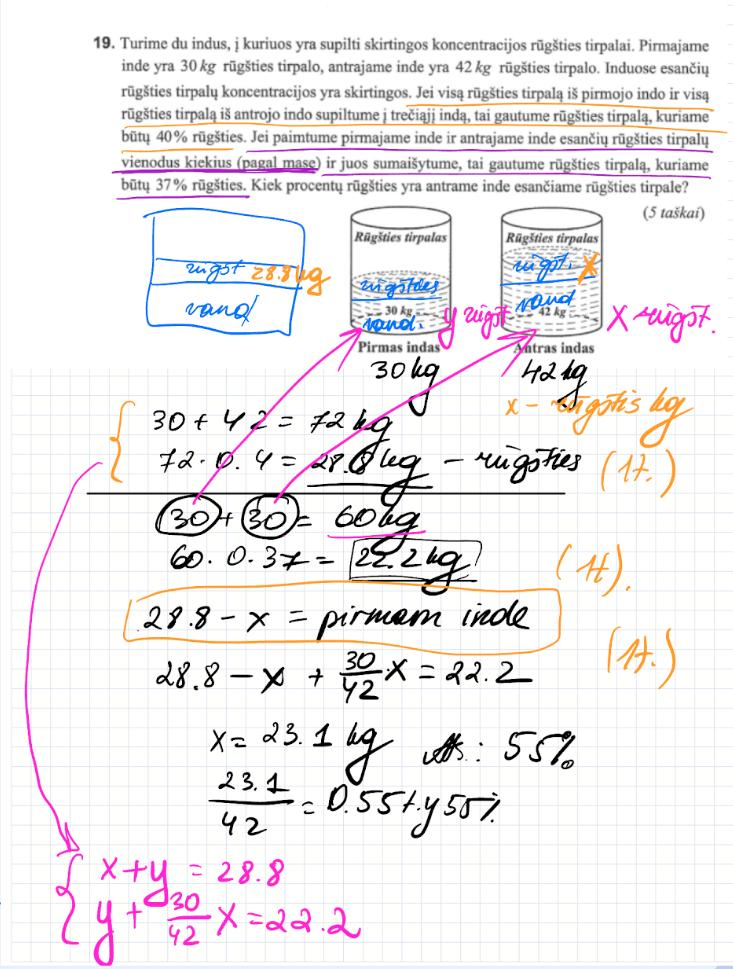 19. Turime du indus, į kuriuos yra supilti skirtingos koncentracijos rūgšties tirpalai. Pirmajame
inde yra 30 kg rūgšties tirpalo, antrajame inde yra 42 kg rūgšties tirpalo. Induose esančių
rūgšties tirpalų koncentracijos yra skirtingos. Jei visą rūgšties tirpalą iš pirmojo indo ir visą
rūgšties tirpalą iš antrojo indo supiltume į trečiąjį indą, tai gautume rūgšties tirpalą, kuriame
būtų 40% rūgšties. Jei paimtume pirmajame inde ir antrajame inde esančių rūgšties tirpalų
vienodus kiekius (pagal masę) ir juos sumaišytume, tai gautume rūgšties tirpalą, kuriame
būtų 37% rūgšties. Kiek procentų rūgšties yra antrame inde esančiame rūgšties tirpale?
(5 taškai)
rūgšt 28.8 kg
vand
Rūgšties tirpalas
rūgšties
30 kg
vand.
y rūgšt
Pirmas indas
30 kg
Rūgšties tirpalas
rūgšt. x
vand
42 kg
x rūgšt.
Antras indas
42 kg
x - rūgštis kg
30 + 42 = 72 kg
72 · 0.4 = 28.8 kg - rūgšties (1t.)
30 + 30 = 60 kg
60 · 0.37 = 22.2 kg (1t).
28.8 - x = pirmam inde (1t.)
28.8 - x + 30/42 · x = 22.2
x = 23.1 kg Ats.: 55%
23.1/42 = 0.55 t.y 55%
x + y = 28.8
y + 30/42 x = 22.2